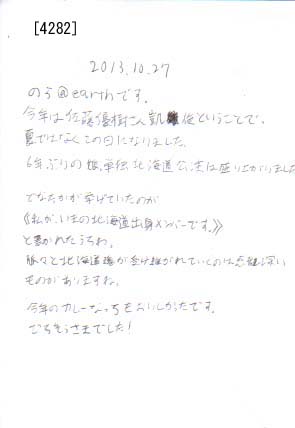 [4282]
2013.10.27
のら@earthです。
今年は佐藤優樹さん凱旋ということで、
夏ではなくこの日になりました。
6年ぶりの娘。単独北海道公演は盛り上がりました
でなたかが挙げていたのが
《私が、いまの北海道出身メンバーです。》
と書かれたうちわ。
脈々と北海道魂が受け継がれていくのは感慨深い
ものがありますね。
今年のカレーなっちもおいしかったです。
ごちそうさまでした!